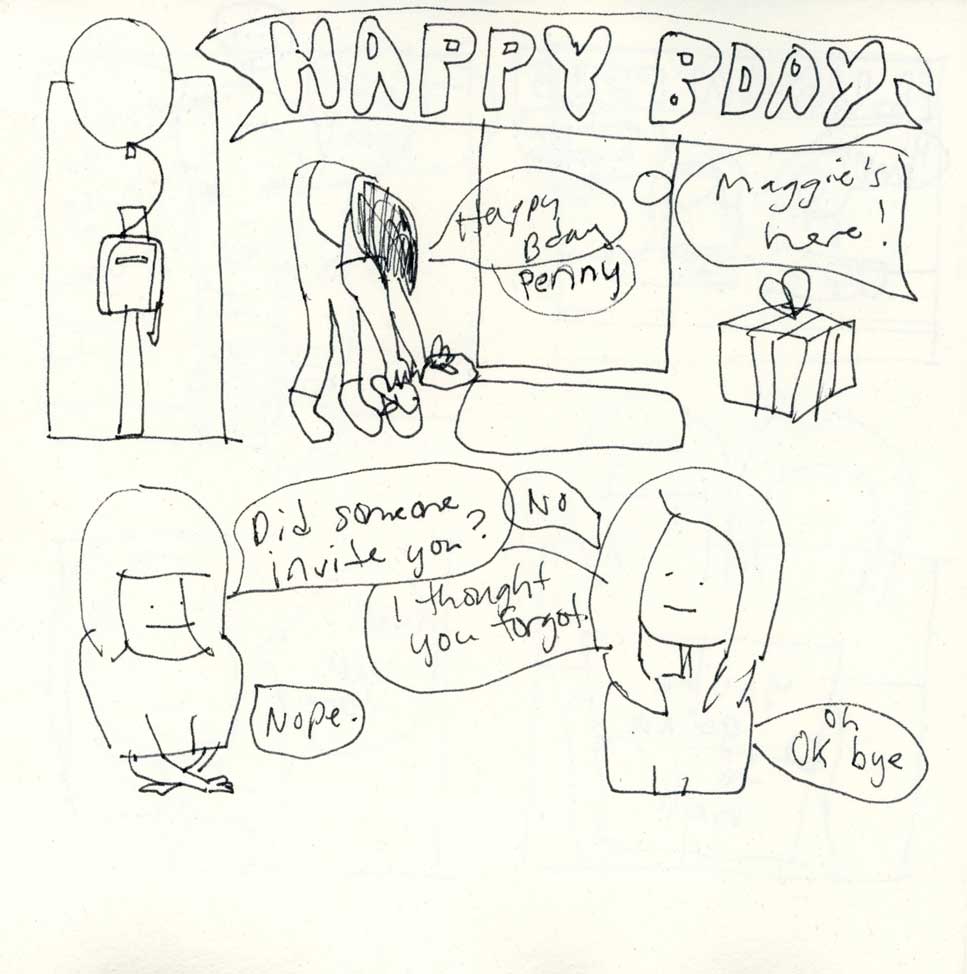 HAPPY BDAY
Happy
Bday
Penny
Maggie's
here!
Did someone
invite you?
No
I thought
you forgot.
Nope.
Oh
OK bye